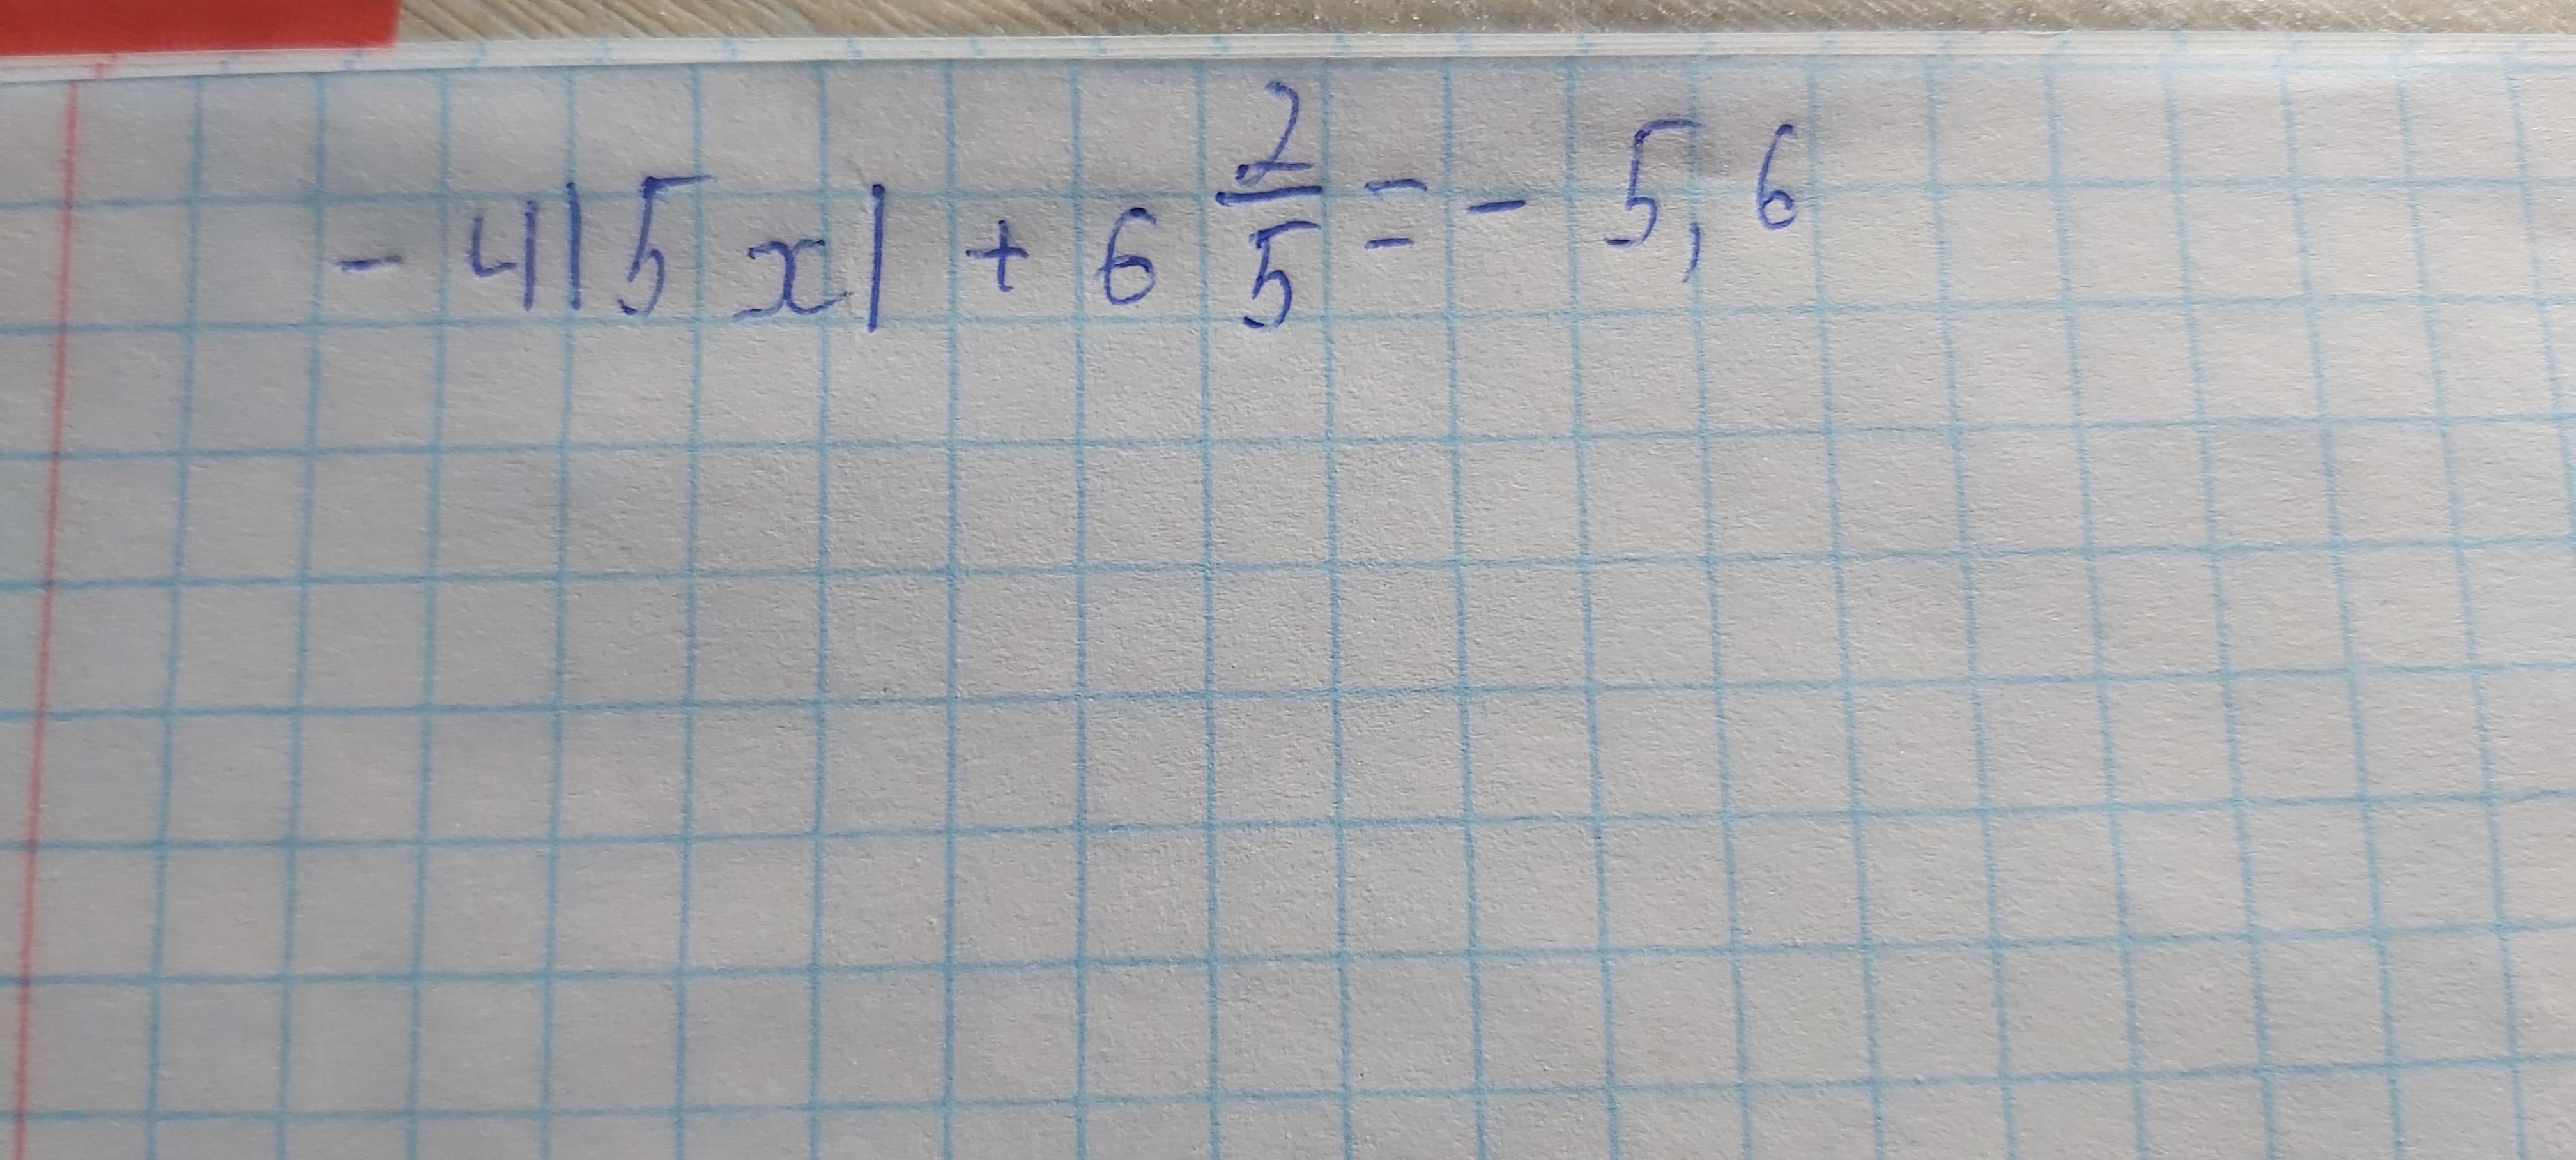 -4|5x| + 6 2/5 = - 5,6